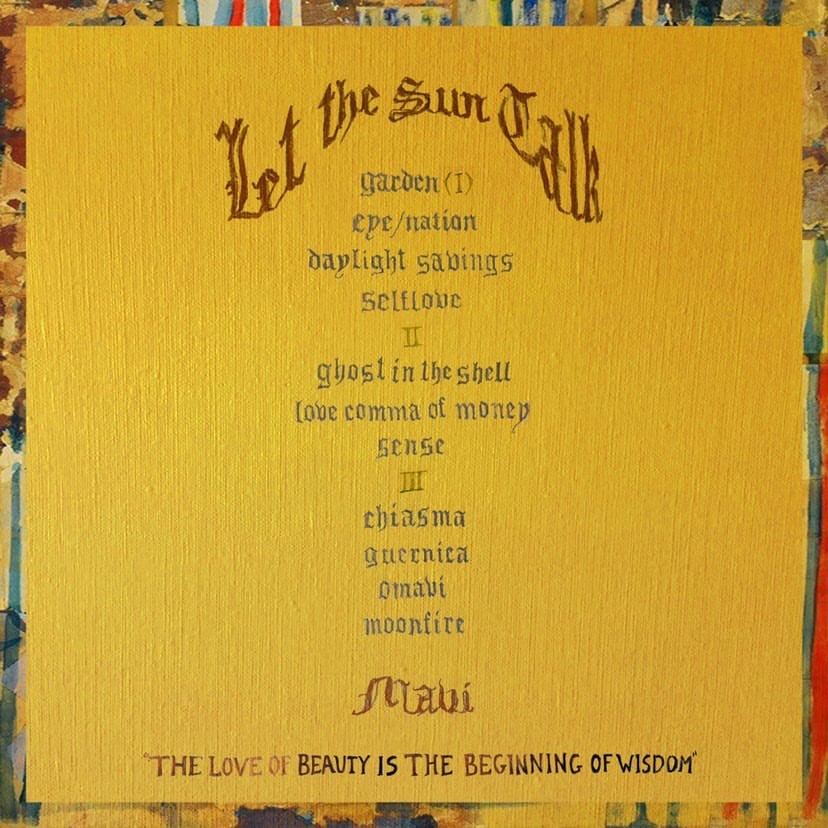 Let the Sun Talk
garden (I)
eye/nation
daylight savings
selflove
II
ghost in the shell
love comma of money
sense
III
chiasma
guernica
omavi
moonfire
Mavi
"THE LOVE OF BEAUTY IS THE BEGINNING OF WISDOM"